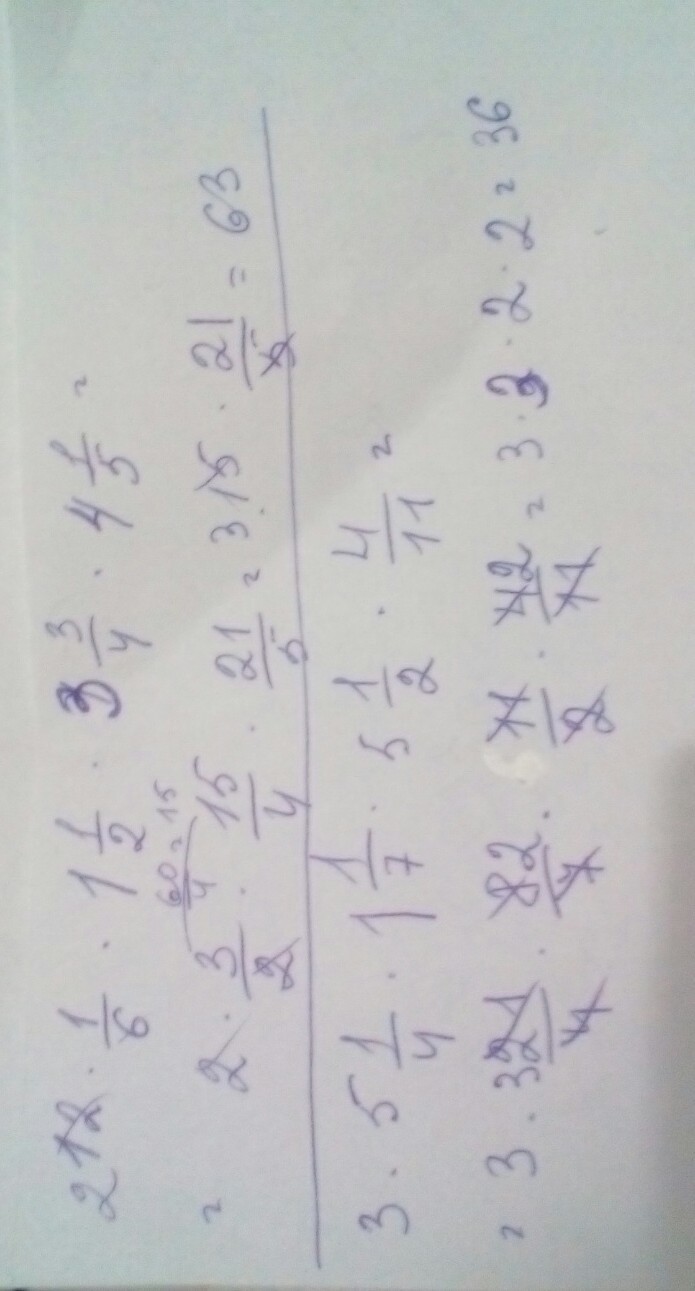 2 12 · 1/6 · 1 1/2 · 3 3/4 · 4 1/5 =
60/4 = 15
= 2 · 3/2 · 15/4 · 21/5 = 3 · 15 · 21/5 = 63
3 · 5 1/4 · 1 1/7 · 5 1/2 · 4/11 =
= 3 · 3 21/4 · 8 2/7 · 11/2 · 4 2/11 = 3 · 3 · 2 · 2 = 36